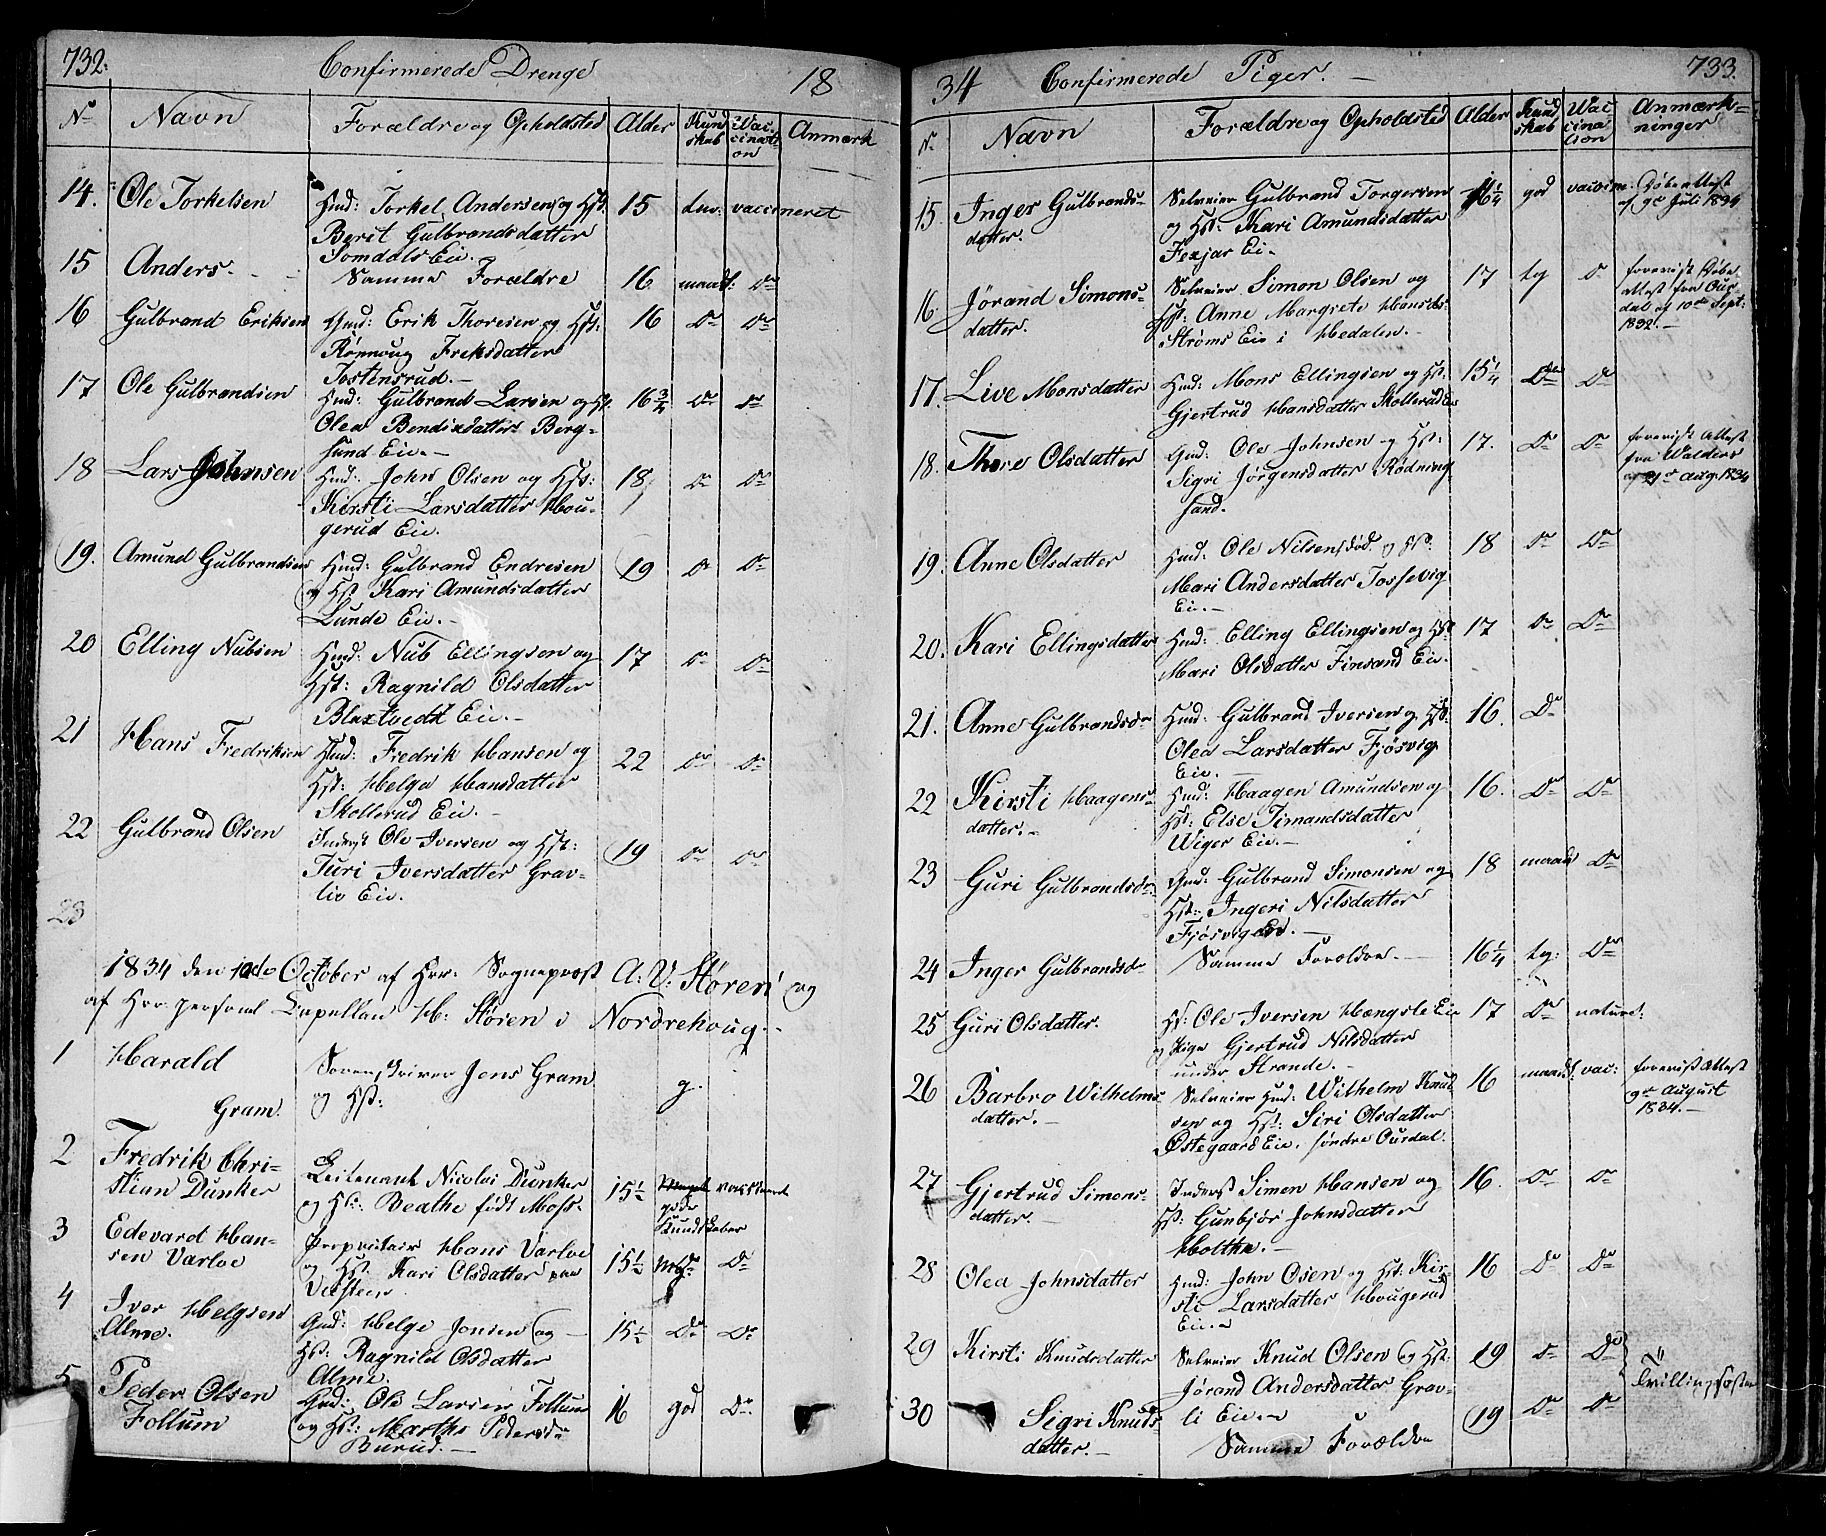 732.
Confirmerede Drenge
18
No
Navn
Forældre og Opholdsted
Alder
Kund
skab
Vac
cinati
on
Anmærk
14.
Ole Torkelsen
Hmd: Torkel Andersen og Hst.
Berit Gulbrandsdatter
Somdals Eie.
15
vaccineret
15
Anders.
Samme Forældre
16
maadl:
Do
16
Gulbrand Eriksen
Gmd: Erik Thoresen og Hst:
Rönnoug Eriksdatter
Tostensrud.
16
Do
Do
17
Ole Gulbrandsen
Hmd: Gulbrand Larsen og Hst.
Olea Bendixdatter Berg-
sund Eie.
16 3/4
Do
Do
18
Lars Johnsen
Hmd: John Olsen og Hst:
Kirsti Larsdatter Hou-
gerud Eie.
18
Do
Do
19.
Amund Gulbrandsen
Hmd: Gulbrand Endresen
og Hst Kari Amundsdatter
Lunde Eie.
19
Do
Do
20
Elling Nubsen
Hmd: Nub Ellingsen og
Hst: Ragnild Olsdatter
Blextvedt Eie.
17
Do
Do
21
Hans Fredriksen
Hmd: Fredrik Hansen og
Hst: Helge Hansdatter
Skollerud Eie.
22
Do
Do
22
Gulbrand Olsen
Inderst Ole Iversen og Hst:
Turi Iversdatter Grav-
lie Eie.
19
Do
Do
23
1834 den October af Hrr. Sogneprest A: V: Støren og
af Hrr. personel Capellan H: Støren i Nordrehoug.
1
Harald
Gram.
Sorenskriver Jens Gram
og Hst:
g.
2
Fredrik Chri-
stian Dunker
Leitenant Nicolai Dunker
og Hst: Beathe født Moss.
15 1/2
gode
Kundskaber
3
Edevard Han-
sen Varloe
Proprietair Hans Varloe
og Hst. Kari Olsdatter
15 1/2
Do
4
Iver Helgsen
Alme.
Gmd: Helge Jonsen og
Hst: Ragnild Olsdatter
Alme.
15 1/2
Do
Do
5
Peder Olsen
Follum
Gmd: Ole Larsen Follum
og Hst: Marthe Pedersdr
Burud.
16
god
Do
34
Confirmerede Piger.
733.
N.
Navn
Forældre og Opholdsted
Alder
Kund
skab
Vac
cina
tion
Anmærk-
ninger
15.
Inger Gulbrands-
datter.
Selveier Gulbrand Torgersen
og Hst: Kari Amundsdatter
Fexjar Ei
16 1/4
god
vaccine.
Döbe Attest
af 9de Juli 1834
16.
Jørand Simons-
datter.
Selveier Simon Olsen og
Hst: Anne Margrete Hansdr
Strøms Eie i Hedalen.
17
tg
Do
forevist Döbe
attest fra Our
dal af 10de Sept:
1832.
17.
Live Monsdatter
Hmd: Mons Ellingsen og Hst:
Gjertrud Hansdatter Skollerud
15 1/4
Do
Do
18.
Thore Olsdatter
Gmd: Ole Johnsen og Hst:
Sigri Jörgensdatter Rödning-
sand.
17.
Do
Do
forevist Attest
fra Walders
Aug. 1834
19.
Anne Olsdatter
Hmd: Ole Nilsen død og Hst:
Mari Andersdatter Tossevig
Eie.
18
Do
Do
20.
Kari Ellingsdatter
Hmd: Elling Ellingsen og Hst
Mari Olsdatter Finsand Eie.
17
Do
Do
21.
Anne Gulbrandsdr
Hmd: Gulbrand Iversen og Hst:
Olea Larsdatter Fjösvig
Eie.
16.
Do
22
Kirsti Haagens-
datter.
Hmd: Haagen Amundsen og
Hst: Else Simansdatter
Wiger Eie.
16.
Do
Do
23
Guri Gulbrandsdr.
Gmd: Gulbrand Simonsen og
Hst: Ingeri Nilsdatter
Fjösvig Eie.
18
maadl
Do
24
Inger Gulbrandsdr
Samme Forældre.
16 1/4
tg:
Do
25
Guri Olsdatter.
Hst: Ole Iversen Hængsle Eie
og Pige Gjertrud Nilsdatter
under Strande.
17
Do
naturl:
26
Barbro Wilhelms-
datter.
Selveier Hmd: Wilhelm Knud
sen og Hst: Siri Olsdatter
Østegaard Eie, søndre Ourdal.
16
maadl:
vac:
forevist Attest
9de August
1834.
27
Gjertrud Simons-
datter.
Inderst Simen Hansen og
Hst: Gunbjør Johnsdatter
Holthe.
16.
Do
Do
28
Olea Johnsdatter
Hmd: John Osen og Hst: Kir-
sti Larsdatter Hougerud
Eie.
16
Do
Do
29
Kirsti Knudsdatter
Selveier Knud Olsen og Hst:
Jörand Andersdatter Grav-
li Eie.
19
Do
Do
Tvillingsøstre
30
Sigri Knuds
datter.
Samme Forældre
19
Do
Do